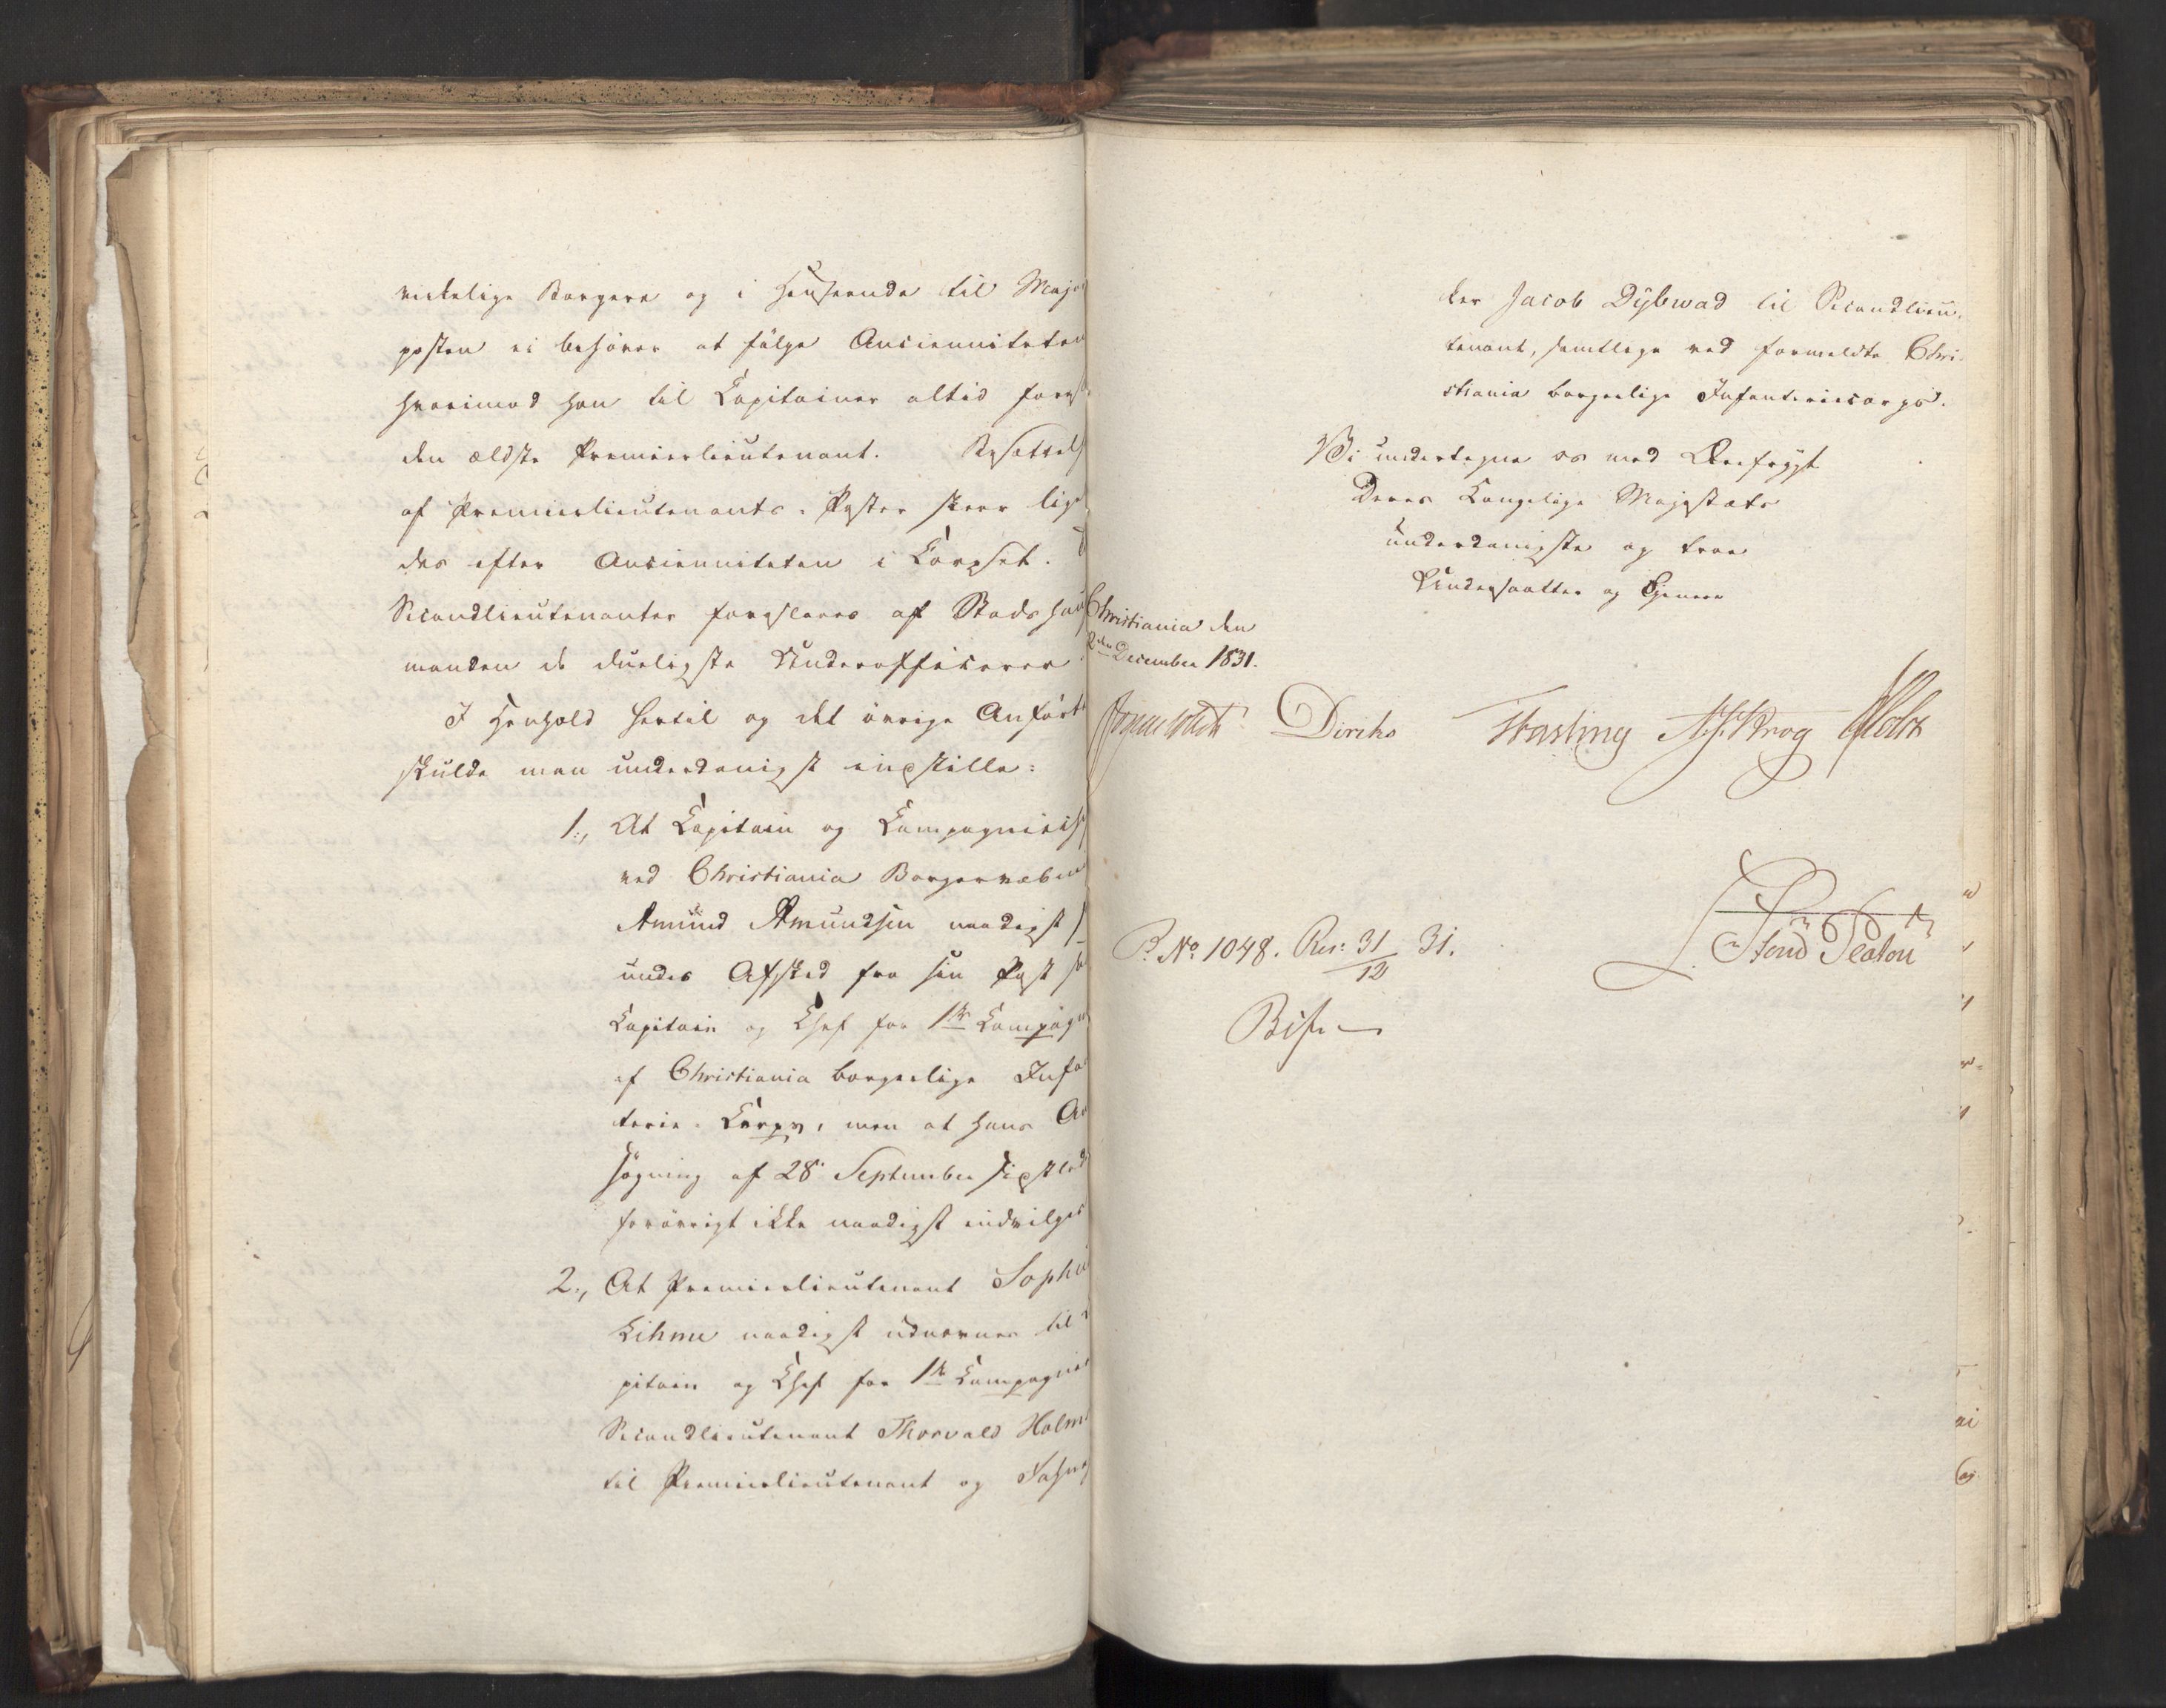 virkelige Borgere og i Henseende til Major
posten ei behöver at fölge Ancienniteten
hvorimod han til Capitainer altid foresl
den ældste Premierlieutenant. Besættels
af Premierlieutenants-Poster skeer lige
des efter Ancienniteten i Corpset.
Secondlieutenanter foreslaaes af Stadshaupt
manden de dueligste Underofficerer
I Henhold hertil og det övrige Anförte
skulde man underdanigst indstille:
1., At Capitain og Compagniech
ved Christiania Borgervæbn
Amund Amundsen naadigst
under Afsked fra sin Post so
Capitain og Chef for 1ste Compagn
af Christiania borgerlige Infa
terie-Corps, men at hans An
sögning af 28 September sidstled
forövrigt ikke naadigst indvilges
2., At Premierlieutenant Sophu
Kihme naadigst udnævnes til
pitain og Chef for 1ste Compagnie
Secondlieutenant Thorvald Holm
til Premierlieutenant og
ker Jacob Dybwad til Secondlieu-
tenant, samtlige ved formeldte Chri-
stiania borgerlige Infanteriecorps.
Vi undertegne os med Ærefrygt
Deres Kongelige Majestæts
underdanigste og troe
Undersaatter og Tjenere
Christiania den
2den December 1831.
Diriks Fasting Krog Holst
P. No 1048. Res: 31/12 31.